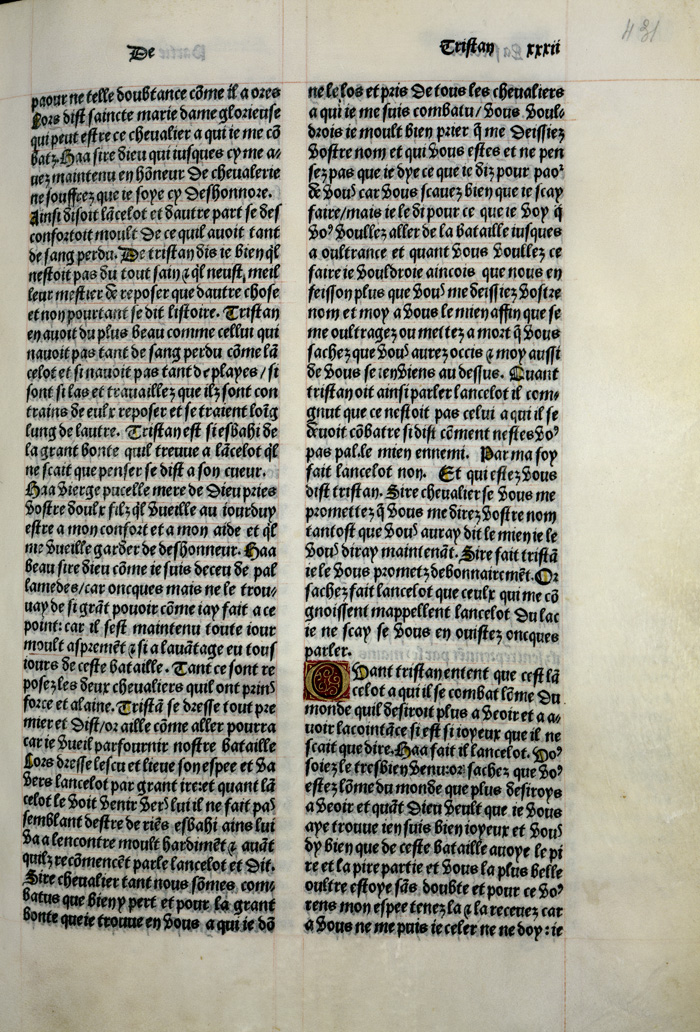 De
Tristan xxxii
431
paour ne telle doubtance cõme il a ores
Lors dist saincte marie dame glorieuse
qui peut estre ce chevalier a qui ie me cõ
batz. Haa sire dieu qui iusques cy me a-
uez maintenu en hõneur De chevalerie
ne souffrez que ie soye cy Deshonnore.
Ainsi disoit lãcelot et dautre part se des
confortoit moult De ce quil avoit tant
de sang perdu. De tristan dis ie bien q̃l
nestoit pas du tout sain ⁊ q̃l neust meil
leur mestier de reposer que dautre chose
et non pourtant se dit listoire. Tristan
en avoit du plus beau comme cellui qui
navoit pas tant de sang perdu cõme lã
celot et si navoit pas tant de playes/ si
sont si las et travaillez que ilz sont con
trains de eulx reposer et se traient loĩg
lung de lautre. Tristan est si esbahi de
la grant bonte quil treuue a lãcelot q̃l
ne scait que penser se dist a son cueur.
Haa vierge pucelle mere de Dieu pries
vostre doulx filz q̃l vueille au iourduy
estre a mon confort et a mon aide et q̃l
me vueille garder de deshonneur. Haa
beau sire dieu cõme ie suis deceu de pal
lamedes/car oncques mais ne le trou-
uay de si grãt pouoir cõme iay fait a ce
point: car il sest maintenu toute iour
moult asprement ⁊ si a lavãtage eu tous
iours de ceste bataille. Tant ce sont re
posez les deux chevaliers quil ont prinˢ
force et alaine. Tristan se dresse tout pre
mier et Dist/or aille cõme aller pourra
car ie vueil parfournir nostre bataille
Lors dresse lescu et lieue son espee et va
vers lancelot par grant ire:et quant lã
celot le voit venir verˢ lui il ne fait paˢ
semblant destre de riẽs esbahi ains lui
va a lencontre moult hardimẽt ⁊ avãt
quilz recõmencẽt parle lancelot et Dit.
Sire chevalier tant nous sõmes com-
batus que bien y pert et pour la grant
bonte que ie trouue en vous a qui ie dõ
ne le los et pris De tous les chevaliers
a qui ie me suis combatu/ vous voul-
drois ie moult bien prier q̃ me Deissiez
vostre nom et qui vous estes et ne pen
sez pas que ie dye ce que ie diz pour paoꝰ
de vouˢ car vous scauez bien que ie scay
faire/mais ie le di pour ce que ie voy q̃
voꝰ voullez aller de la bataille iusques
a oultrance et quant vous voullez ce
faire ie vouldroie aincois que nous en
feissõ plus que vouˢ me deissiez vostre
nom et moy a vous le mien affin que se
me oultragez ou mettez a mort q̃ vous
sachez que vouˢ aurez occis ⁊ moy aussi
de vous se ien viens au dessus. Quant
tristan oit ainsi parler lancelot il com-
gnut que ce nestoit pas celui a qui il se
devoit cõbatre si dist cõment nestes voꝰ
pas pal.le mien ennemi. Par ma foy
fait lancelot non. Et qui estez vous
dist tristan. Sire chevalier se vous me
promettez q̃ vous me direz vostre nom
tantost que vouˢ auray dit le mien ie le
vouˢ diray maintenãt. Sire fait tristã
ie le vous prometz debonnairemẽt. Or
sachez fait lancelot que ceulx qui me cõ
gnoissent mappellent lancelot Du lac
ie ne scay se vous en ouistez oncques
parler.
Quant tristan entent que cest lã
celot a qui il se combat lõme Du
monde quil desiroit plus a veoir et a a-
uoir lacointãce il est si ioyeux que il ne
scait que dire. Haa fait il lancelot. Voꝰ
soiez le tresbien venu:or sachez que voꝰ
estez lõme du monde que plus desiroys
a veoir et quãt Dieu veult que ie vous
aye trouue ien suis bien ioyeux et vouˢ
dy bien que de ceste bataille auoye le pi
re et la pire partie et vous la plus belle
oultre estoye sãs doubte et pour ce voꝰ
rens mon espee tenez la ⁊ la recevez car
a vous ne me puis ie celer ne ne doy: ie